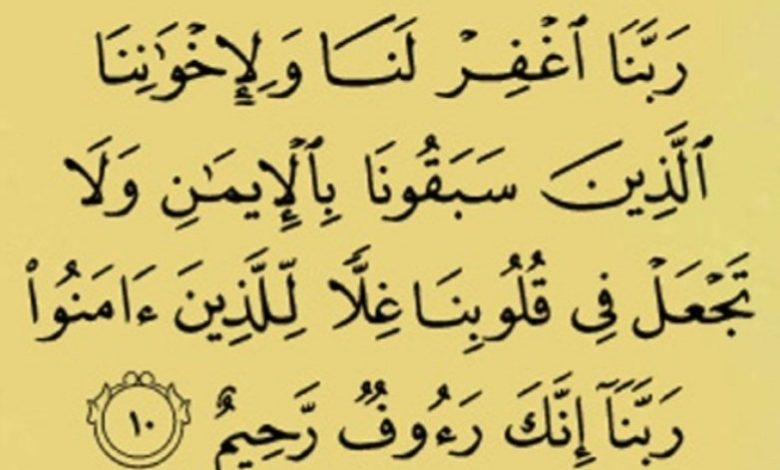 رَبَّنَا ٱغۡفِرۡ لَنَا وَلِإِخۡوَٰنِنَا
ٱلَّذِينَ سَبَقُونَا بِٱلۡإِيمَٰنِ وَلَا
تَجۡعَلۡ فِي قُلُوبِنَا غِلّٗا لِّلَّذِينَ ءَامَنُواْ
رَبَّنَآ إِنَّكَ رَءُوفٞ رَّحِيمٌ ١٠